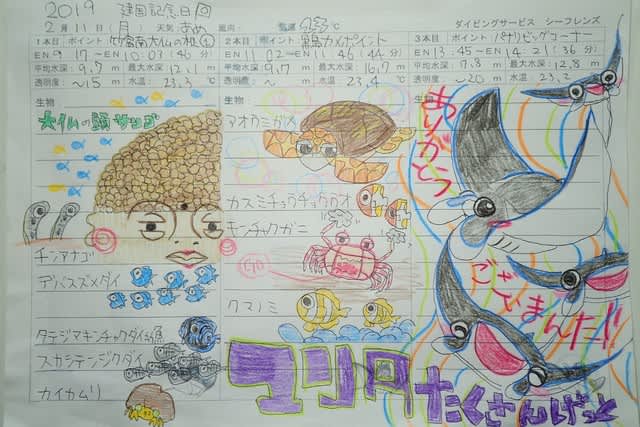 2019 建国記念日
2月11日(月) 天気:あめ 風向: 気温 23℃ ダイビングサービス シーフレンズ
1本目 ポイント 竹富南大イムの根
EN 9:17 ~EN 10:03 (46分)
平均水深:9.7m 最大水深:12.1m
透明度:~15m 水温:23.2℃
2本目 ポイント カメポイント
EN 11:02 ~EN 11:46 (44分)
平均水深:9.7m 最大水深:16.7m
透明度: ~ m 水温:23.4℃
3本目 ポイント パナリビッグコーナー
EN 13:45 ~EN 14:21 (36分)
平均水深:7.8m 最大水深:12.8m
透明度:~20m 水温:23.2℃
生物
大イムの頭 サンゴ
チンアナゴ
デバスズメダイ
タテジマキンチャクダイ幼魚
スカシテンジクダイ
カイカムリ
生物
アオウミガメ
カスミチョウチョウウオ
モンチャクガニ
クマノミ
生物
ありがとう
ございまんた!!
マンタ
たくさんげっと